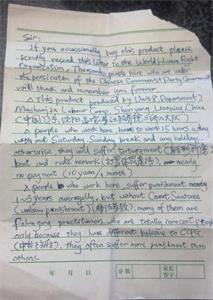 Sir:
If you occasionally buy this product, please
kindly resend this letter to the World Human Right
Organization. Thousands people here who are under
the persicution of the Chinese Communist Party Government
will thank and remember you forever.
This product produced by Unit 8, Department 2,
Masanjia Labour Camp, Shenyang, Liaoning, China
(中国,辽宁,沈阳,
people who work here, have to work 15 hours a day
with out Saturday, Sunday break and any holidays,
otherwise, they will suffer torturement
beat and rude remark nearly
no payment (10 yuan/1 month)
people who work here, suffer punishment nearly
1~3 years averagelly, but without Court Sentence
(unlaw punishment) many of them are
Falun gong practitioner, who are totally innocent people
only because they have different believe to CCPG
they often suffer more punishment than
others.
年 月 日